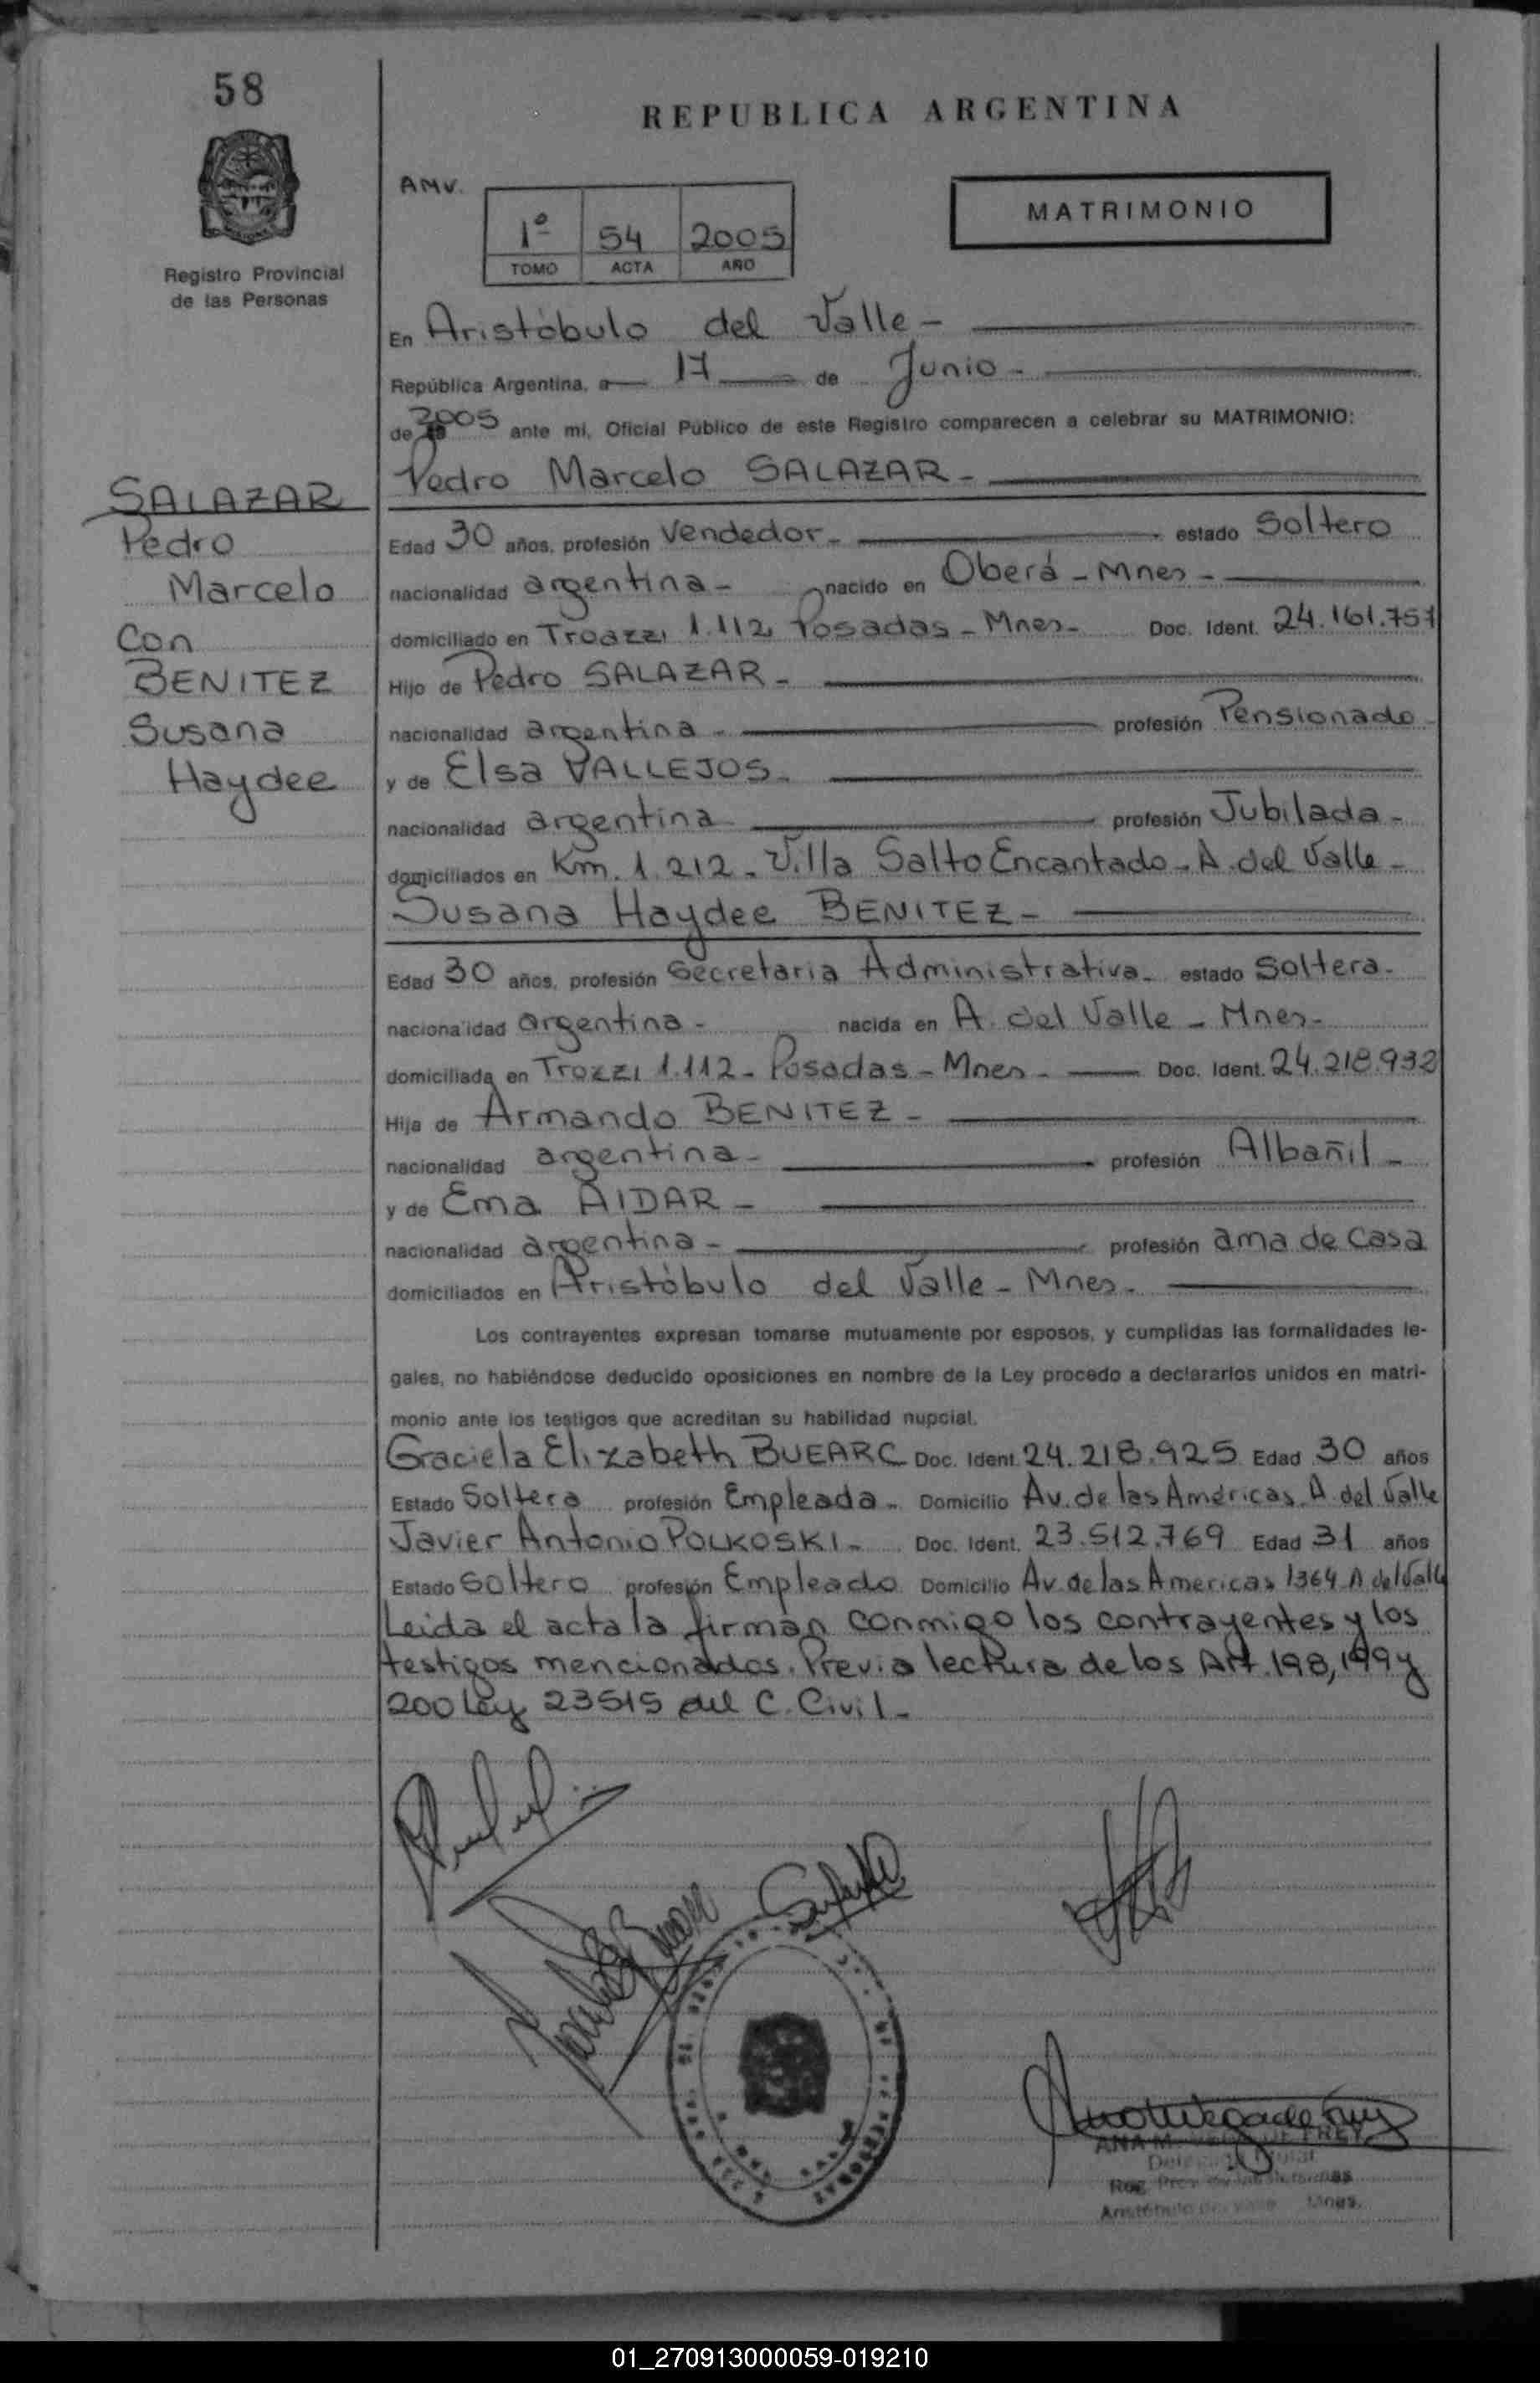 58
REPUBLICA ARGENTINA
AMV.
1º 54 2005
TOMO ACTA AÑO
MATRIMONIO
Registro Provincial
de las Personas
SALAZAR
Pedro
Marcelo
Con
BENITEZ
Susana
Haydee
En Aristóbulo del Valle -
República Argentina, a 17 de Junio -
de 2005 ante mi, Oficial Público de este Registro comparecen a celebrar su MATRIMONIO:
Pedro Marcelo SALAZAR -
Edad 30 años, profesión Vendedor - estado Soltero
nacionalidad argentina - nacido en Oberá - Mnes -
domiciliado en 1.112 Posadas - Mnes - Doc. Ident. 24.161.757
Hijo de Pedro SALAZAR -
nacionalidad argentina - profesión Pensionado -
y de Elsa VALLEJOS -
nacionalidad argentina profesión Jubilada -
domiciliados en Km. 1.212 - Villa Salto Encantado - A. del Valle -
Susana Haydee BENITEZ -
Edad 30 años, profesión Secretaria Administrativa - estado Soltera -
nacionalidad argentina - nacida en A. del Valle - Mnes -
domiciliada en Trozzi 1.112 - Posadas - Mnes - Doc. Ident. 24.218.932
Hija de Armando BENITEZ -
nacionalidad argentina - profesión Albañil -
y de Ema AIDAR -
nacionalidad argentina - profesión ama de casa
domiciliados en Aristóbulo del Valle - Mnes -
Los contrayentes expresan tomarse mutuamente por esposos, y cumplidas las formalidades le-
gales, no habiéndose deducido oposiciones en nombre de la Ley procedo a declararlos unidos en matri-
monio ante los testigos que acreditan su habilidad nupcial.
Graciela Elizabeth BUEARC Doc. Ident. 24.218.925 Edad 30 años
Estado Soltera profesión Empleada - Domicilio Av. de las Américas A. del Valle
Javier Antonio POLKOSKI - Doc. Ident. 23.512.769 Edad 31 años
Estado Soltero profesión Empleado Domicilio Av. de las Americas 1364 A. del Valle
Leida el acta la firman conmigo los contrayentes y los
testigos mencionados. Previa lectura de los Art. 198, 199 y
200 Ley 23515 del C. Civil -
ANA M. VEGA DE FREY
Reg. Prov. de las Personas
Aristóbulo del Valle Mnes.
01_270913000059-019210